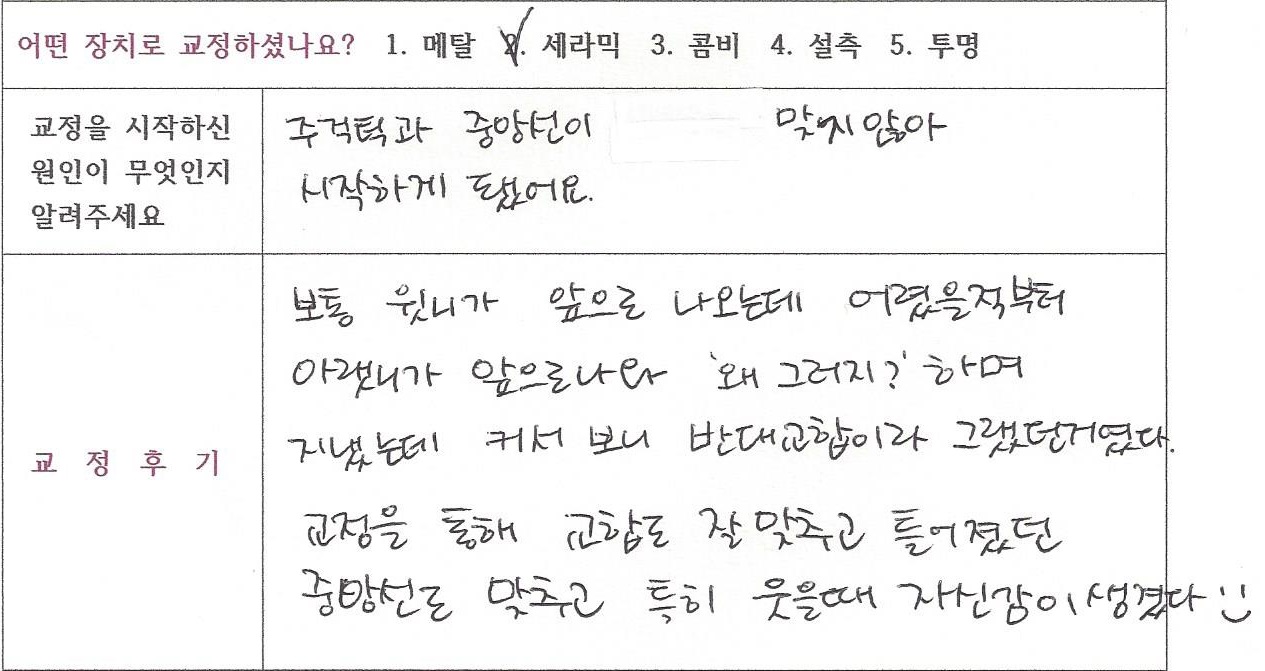 어떤 장치로 교정하셨나요? 1. 메탈 2. 세라믹 3. 콤비 4. 설측 5. 투명
교정을 시작하신
원인이 무엇인지
알려주세요
주걱턱과 중앙선이 맞지않아
시작하게 됐어요.
교 정 후 기
보통 윗니가 앞으로 나오는데 어렸을적부터
아랫니가 앞으로나와 '왜 그러지?' 하며
지냈는데 커서 보니 반대교합이라 그랬던거였다.
교정을 통해 교합도 잘 맞추고 틀어졌던
중앙선도 맞추고 특히 웃을때 자신감이 생겼다 :)